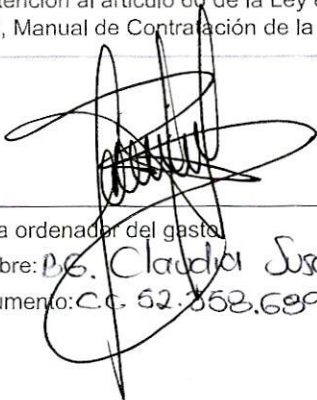 tención al artículo 60 de la Ley
, Manual de Contratación de la
a ordenador del gasto
bre: BG. Claudia
umento: CC 52.358.689